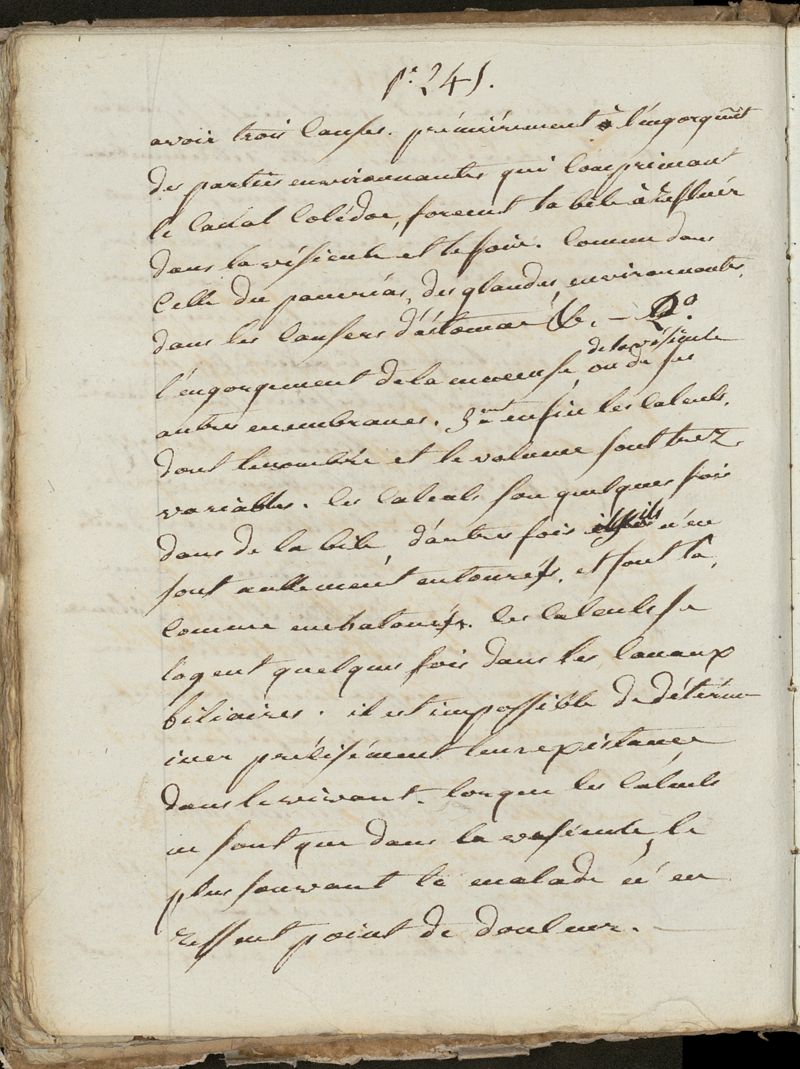 pe. 241.
avoir trois causes. prémiérement à l'éngorgmt
des parties environnantes qui comprimant
le canal colédoc, forcent la bile à réfluér
dans la vésicule et le foie. comme dans
celle du pancréas, des glandes environnantes,
dans les cancers d'éstomac &c. — 2o.
l'éngorgement de la muceuse de la vésicule ou de ses
autres membranes. 3ment enfin les calculs,
dont le nombre et le volume sont trez
variables. les calculs son quelques fois
dans de la bile, d'autres fois ils n'en
sont nullement entourés, et sont là,
comme enchatonés. les calculs se
logent quelques fois dans les canaux
biliaires. il est impossible de détérm
iner précisément leur existance
dans le vivant. lorsque les calculs
ne sont que dans la vésicule, le
plus souvant le malade n'en
ressent point de douleur. —